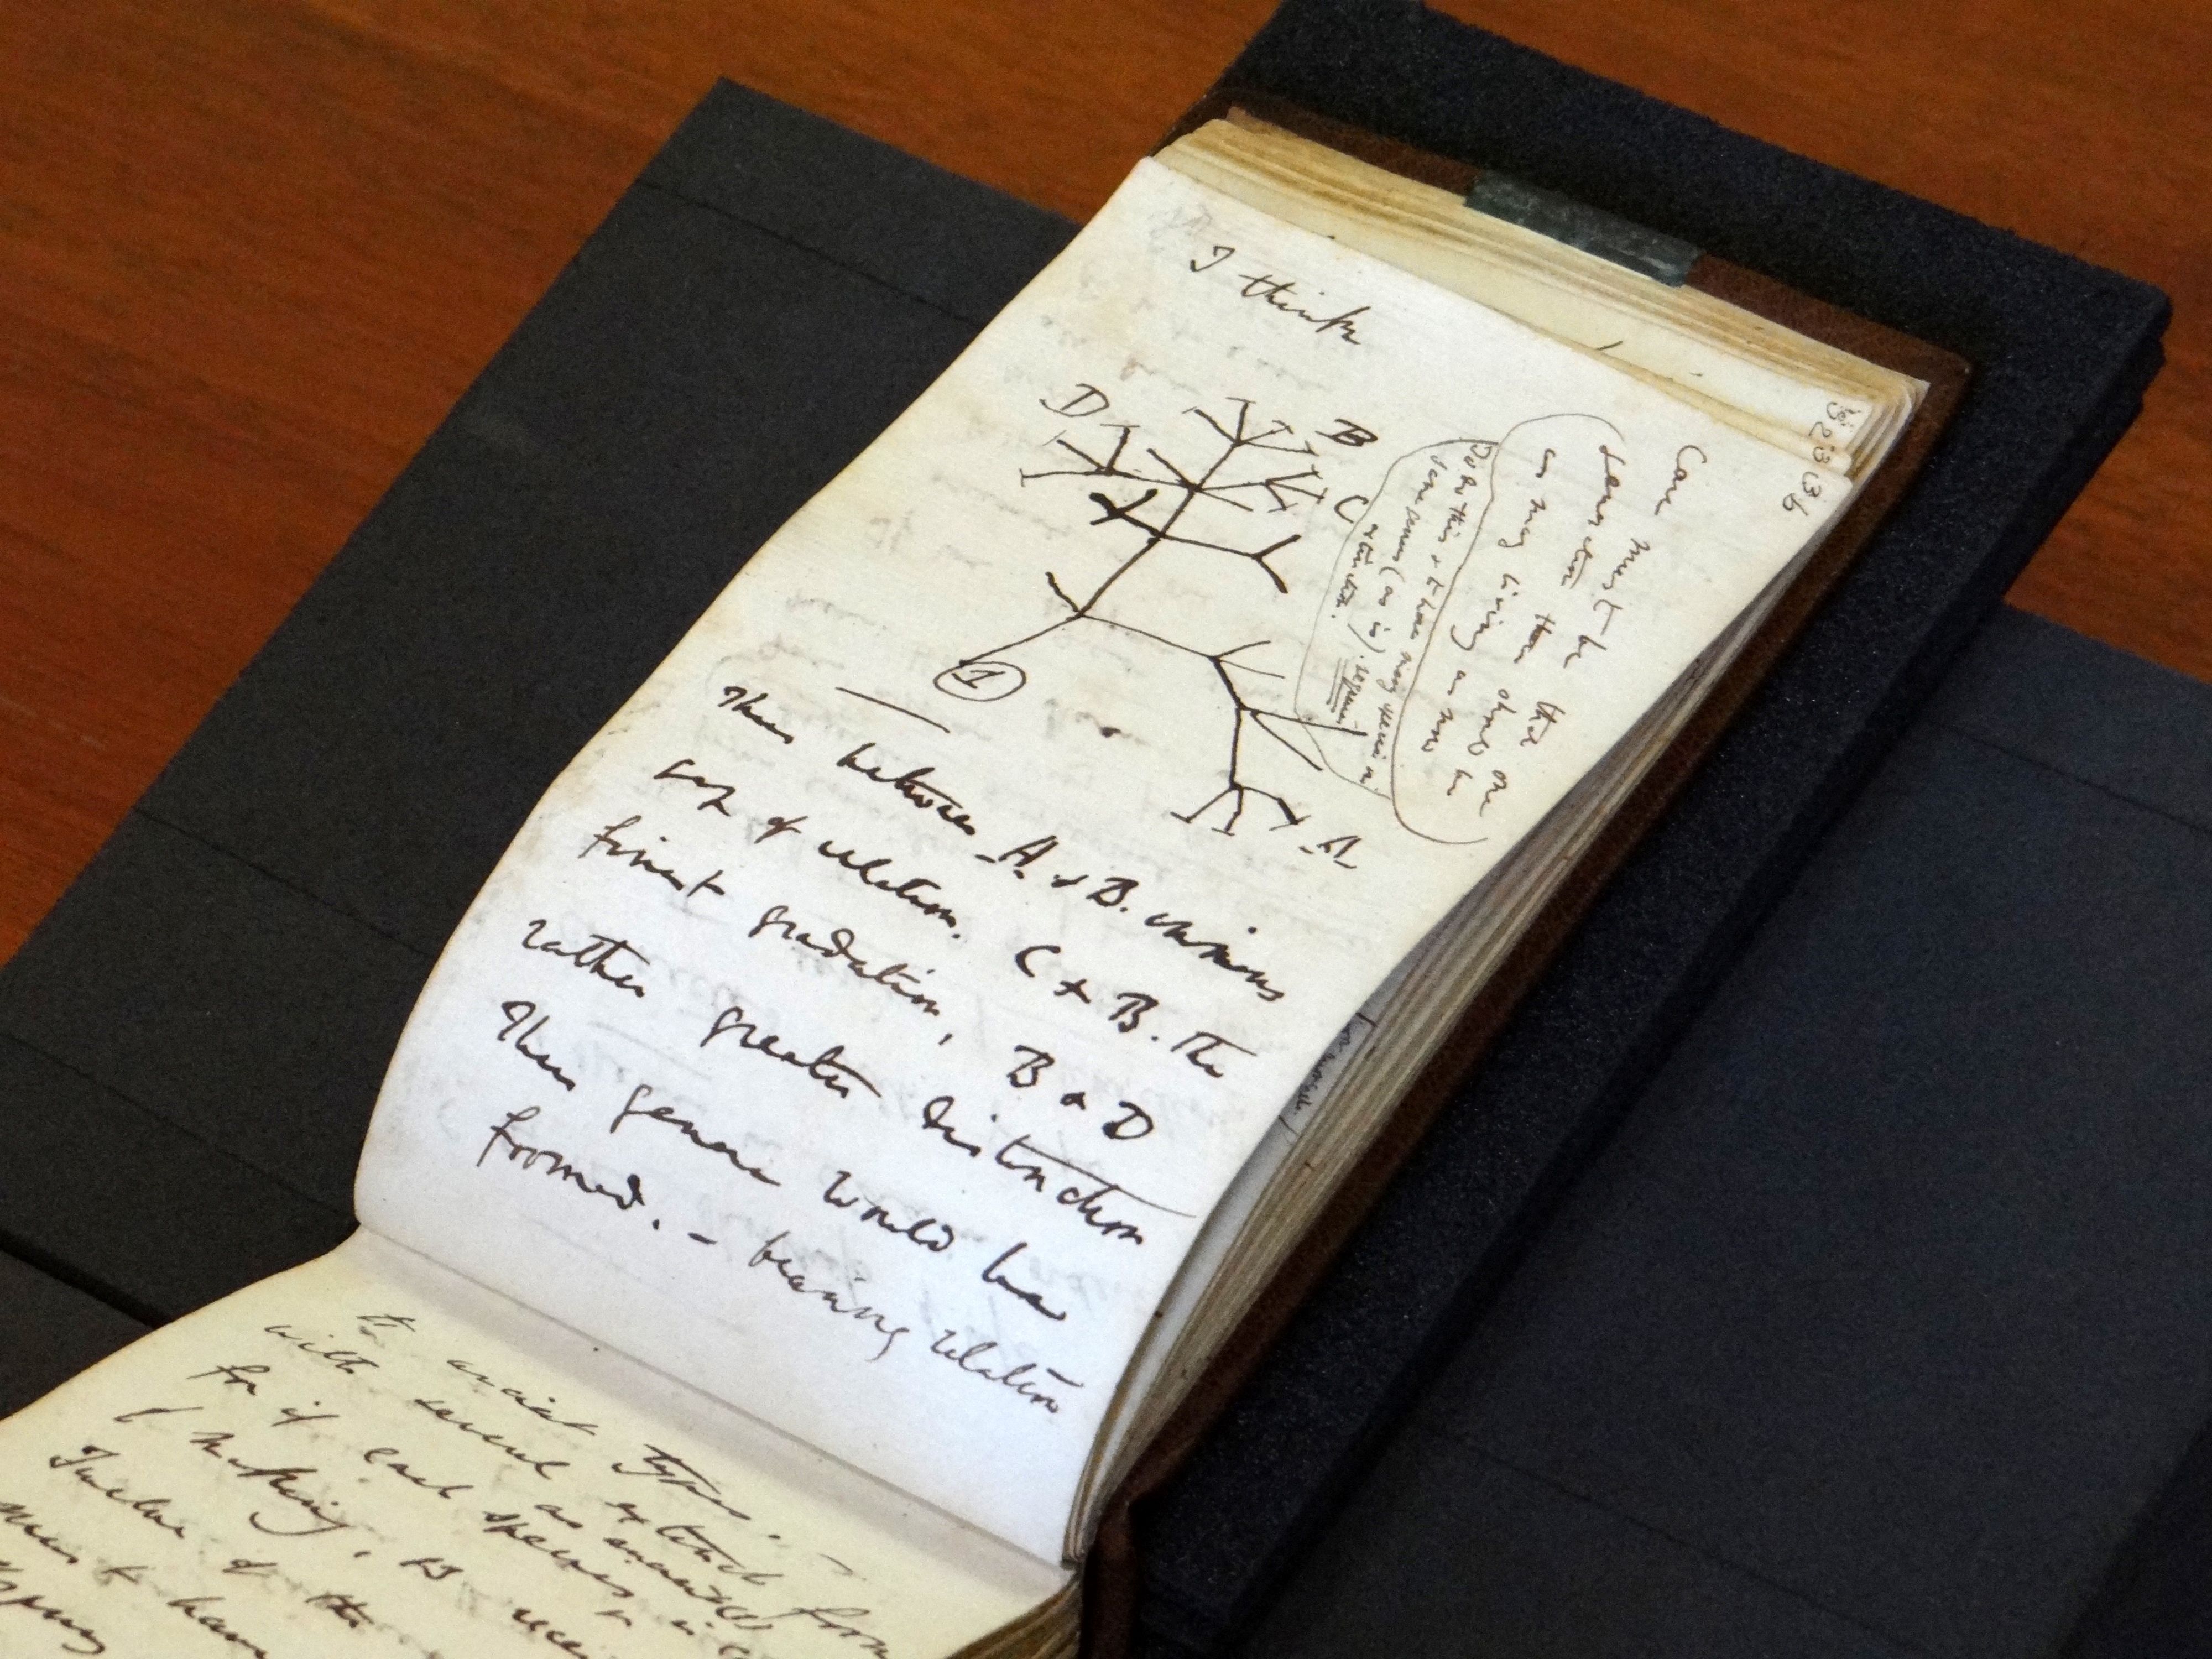 36
I think
Case must be that one
generation then should be
as many living as now
To do this & to have many species in
same genus (as is). requires
extinction.
D
B
C
A
1
Thus between A. & B. immense
gap of relation. C & B. The
finest gradation, B & D
rather greater distinction
Thus genera would be
formed. – bearing relation
to ancient types. –
with several extinct forms
for if each species as ancient (1) is
of making, 13
Twelve of the
must have